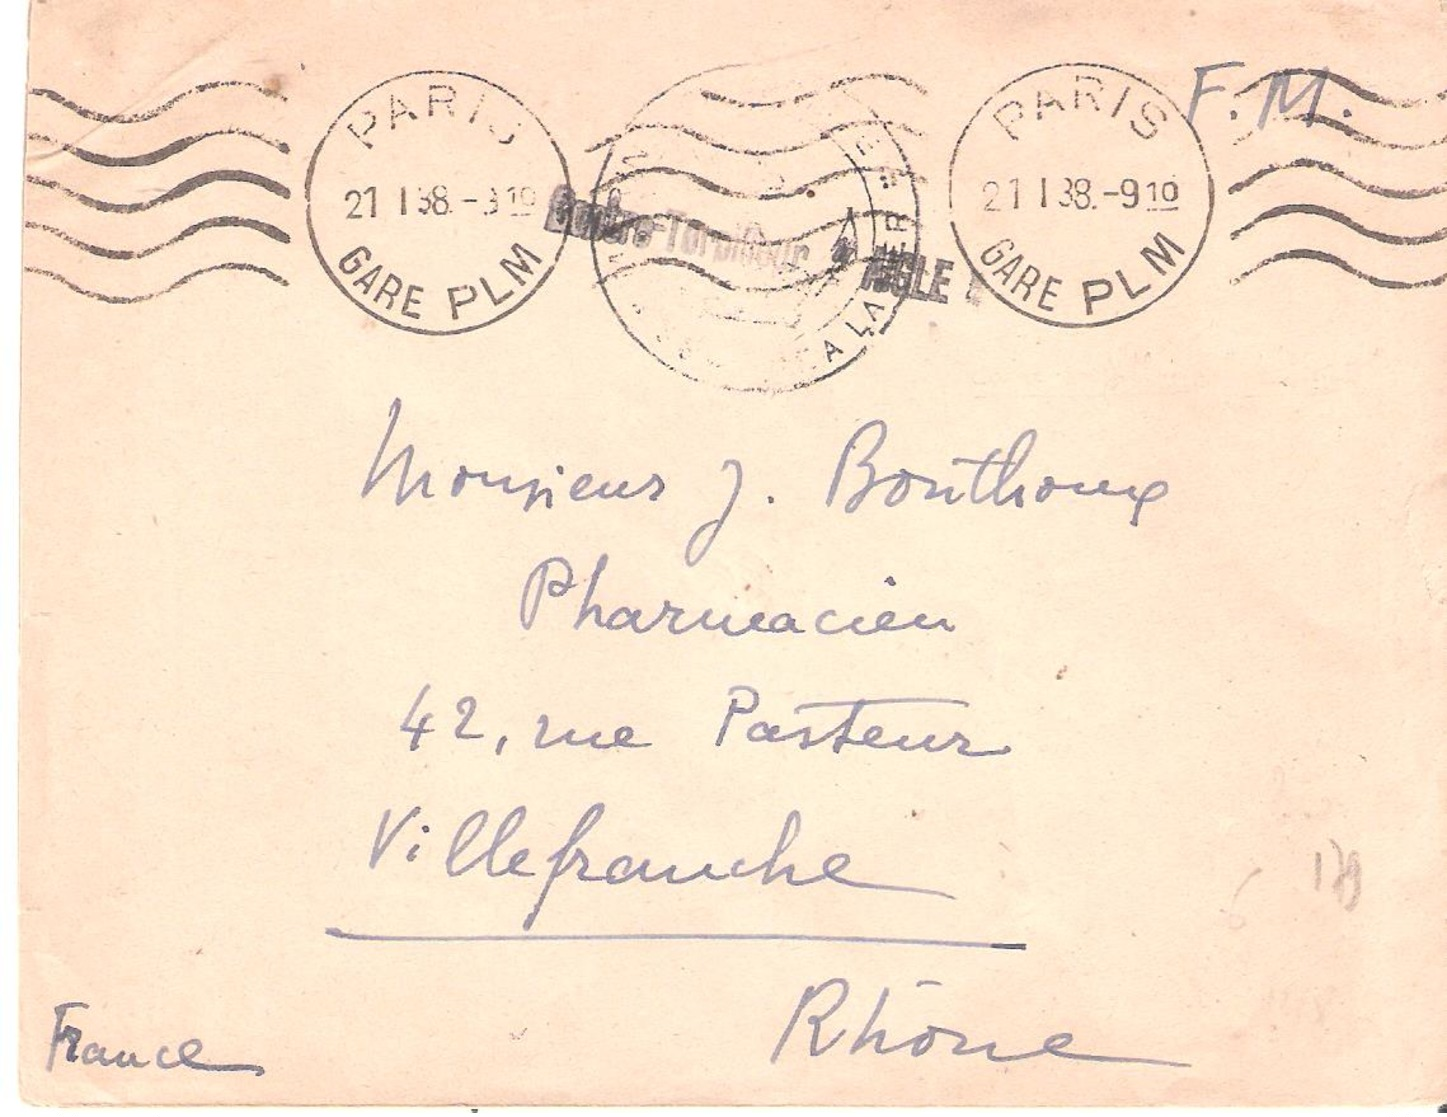 PARIS
21 I 38. - 9 10
GARE PLM
Contre-Torpilleur
AIGLE
A LA MER
PARIS
21 I 38. - 9 10
GARE PLM
F.M.
Monsieur J. Bonthoux
Pharmacien
42, rue Pasteur
Villefranche
Rhône
France
179